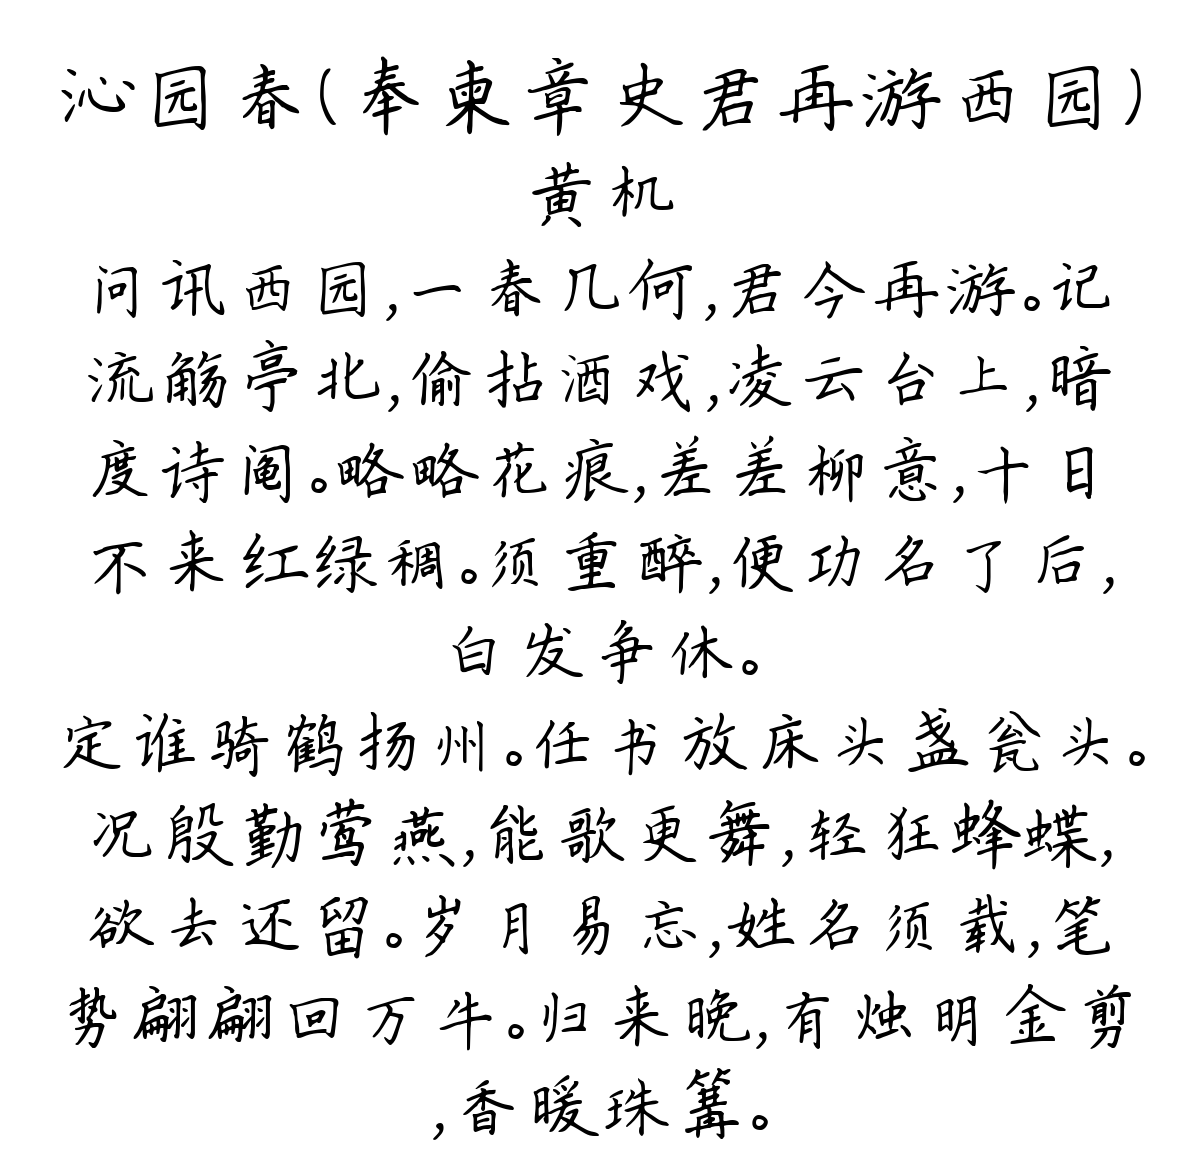 沁园春(奉柬章史君再游西园)
黄机
问讯西园,一春几何,君今再游。记
流觞亭北,偷拈酒戏,凌云台上,暗
度诗阄。略略花痕,差差柳意,十日
不来红绿稠。须重醉,便功名了后,
白发争休。
定谁骑鹤扬州。任书放床头盏瓮头。
况殷勤莺燕,能歌更舞,轻狂蜂蝶,
欲去还留。岁月易忘,姓名须载,笔
势翩翩回万牛。归来晚,有烛明金剪
,香暖珠篝。